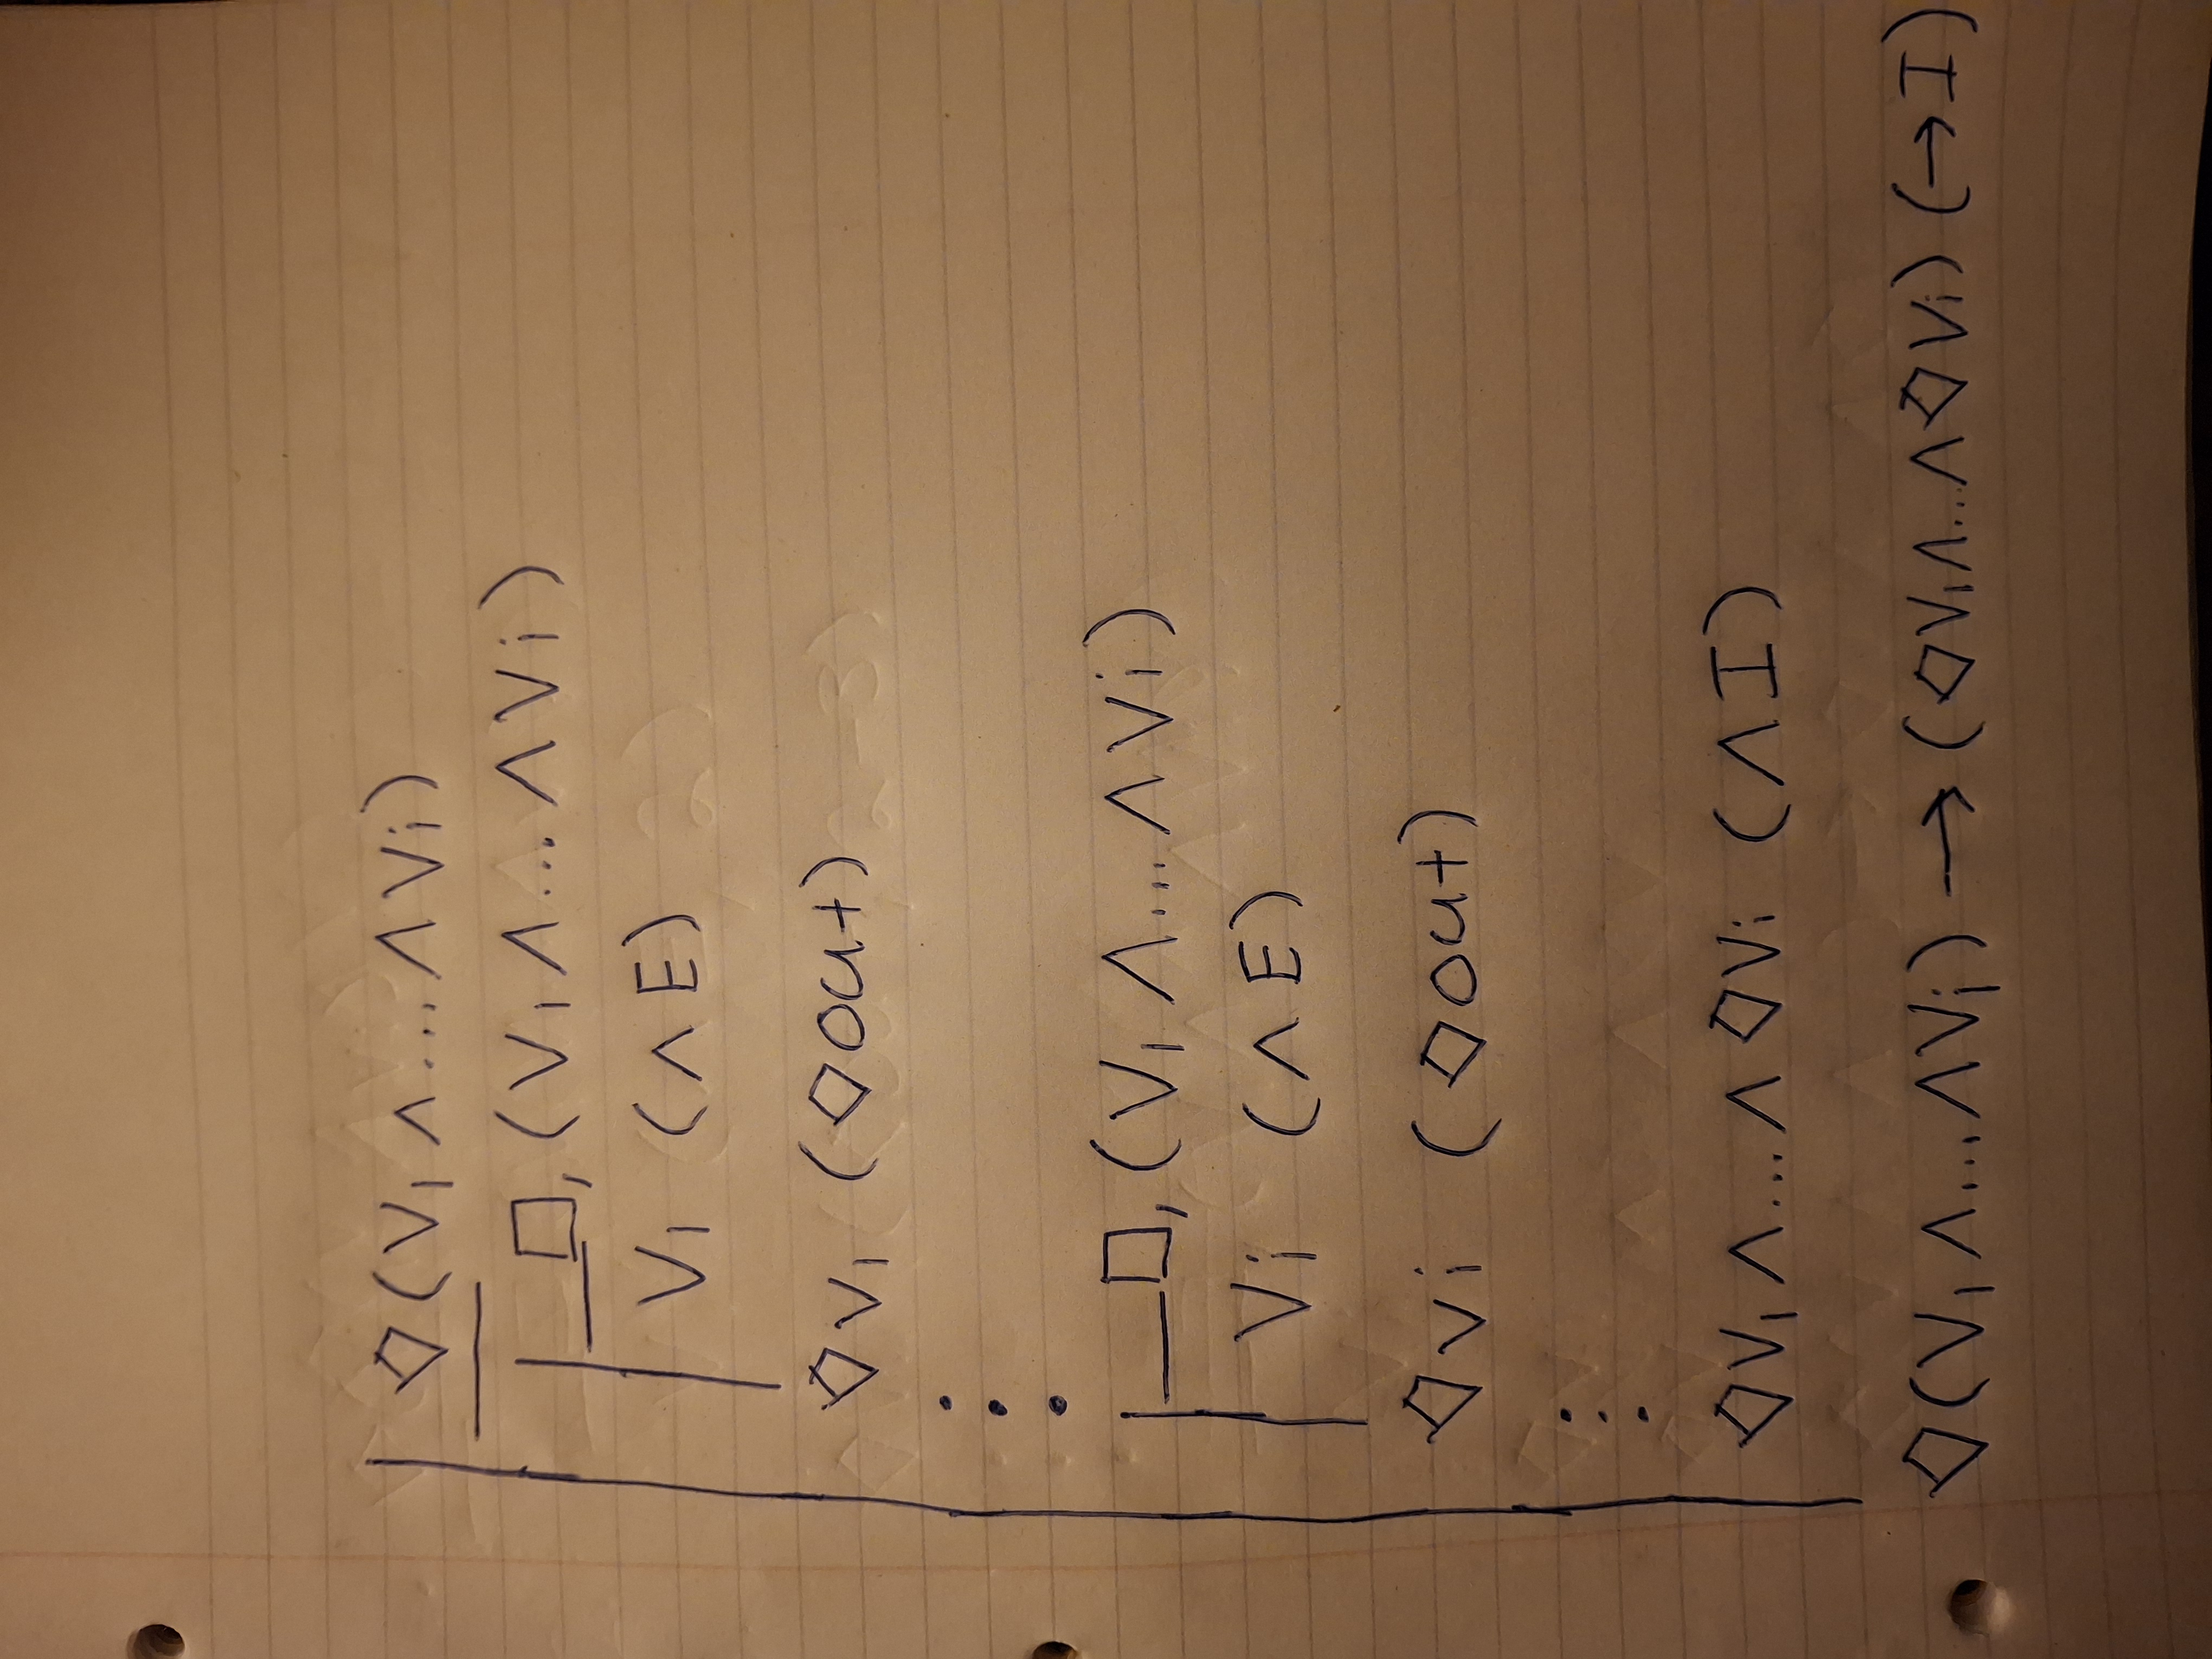 ◇(V₁∧...∧Vi)
□,(V₁∧...∧Vi)
V₁ (∧E)
◇V₁ (◇Out)
...
□,(V₁∧...∧Vi)
Vi (∧E)
◇Vi (◇Out)
...
◇V₁∧...∧◇Vi (∧I)
◇(V₁∧...∧Vi)→(◇V₁∧...∧◇Vi) (→I)